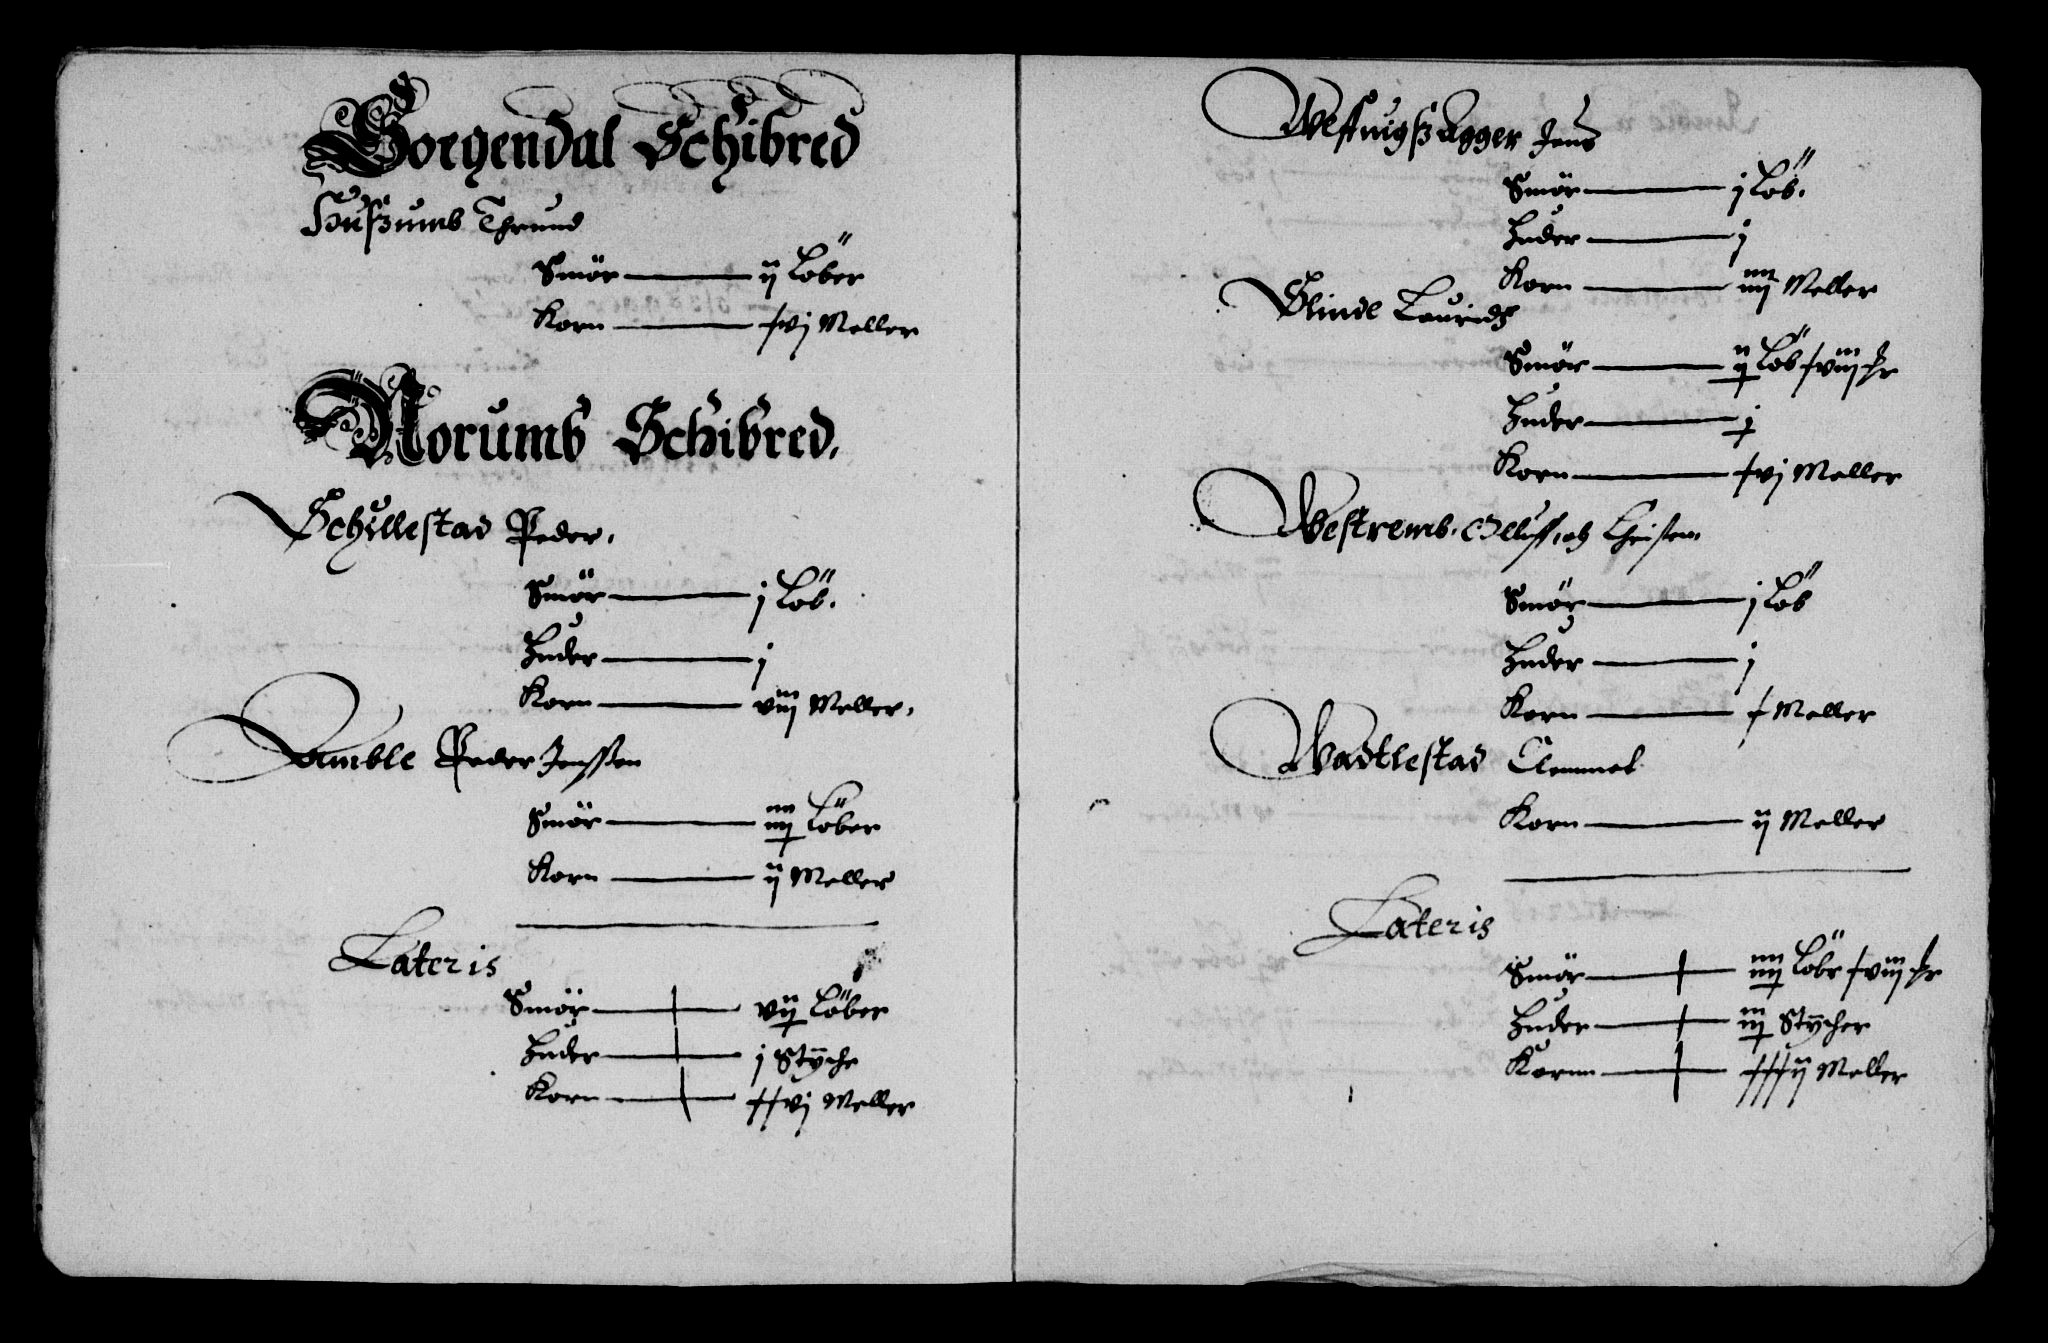 Sorgendal Schibred
Hußumb Thrund
Smör — ij Löber
Korn — xvj Meller
Norumb Schibred.
Schillestad Peder.
Smör — j Löb.
Huder — j
Korn — viij Meller.
Amble Peder Jenßen
Smör — iiij Löber
Korn — ij Meller
Lateris
Smör — vij Löber
Huder — j Stÿche
Korn — xxvj Meller
Agger Jens
Smör — j Löb.
Huder — j
Korn — iiij Meller
Slinde Lauridz
Smör — ij Löb xviij
Huder — j
Korn — xvj Meller
Westremb. Olluff, och Christen.
Smör — j Löb
Huder — j
Korn — x Meller
Wadtlestad Clemmet
Korn — ij Meller
Lateris
Smör — iiij Löbr xviij
Huder — iij Stÿcher
Kornn — xxxij Meller